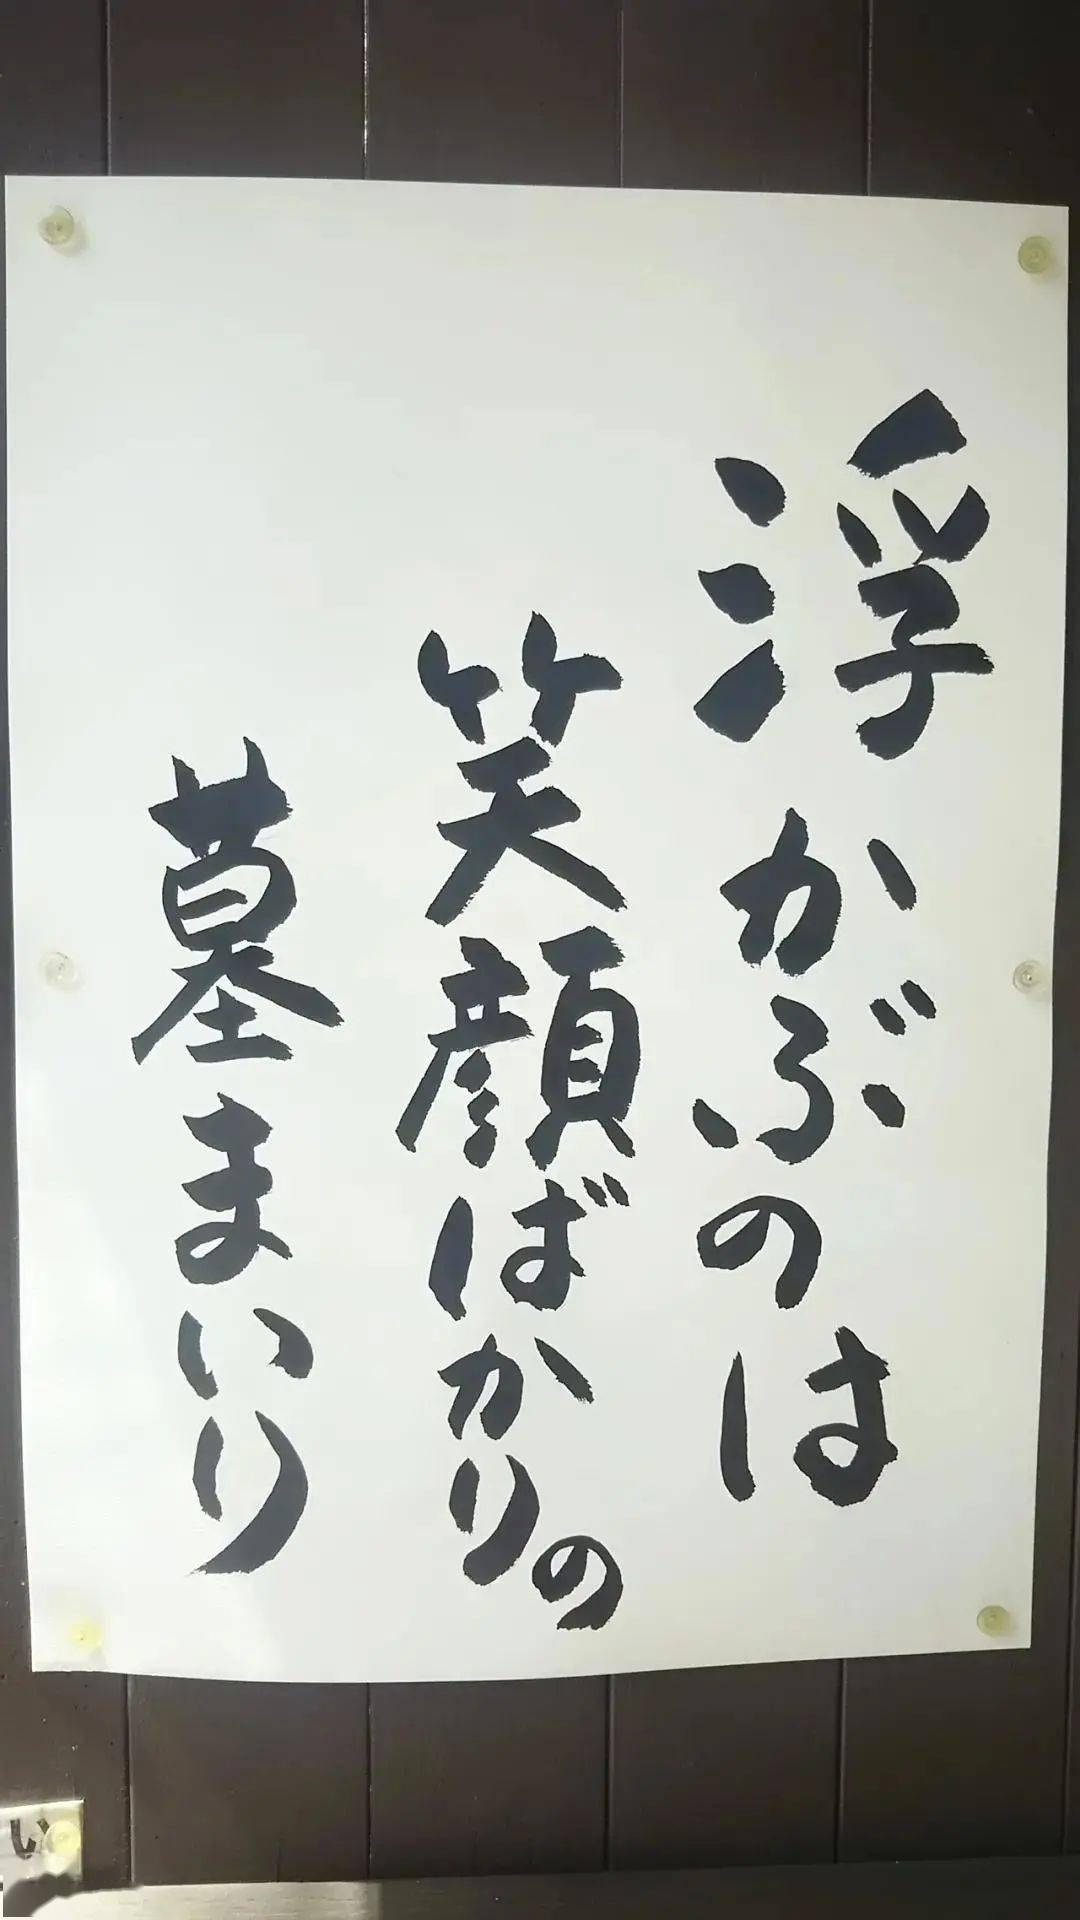 浮かぶのは
笑顔ばかりの
墓まいり
い